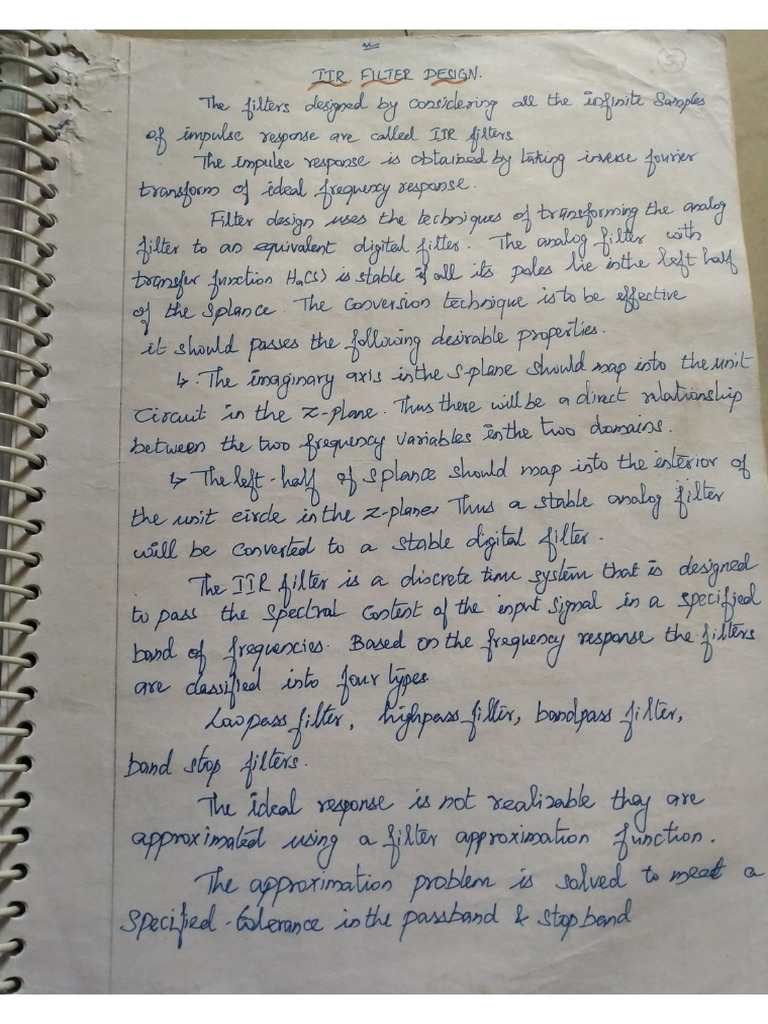 IIR FILTER DESIGN.
The filters designed by considering all the infinite samples
of impulse response are called IIR filters
The impulse response is obtained by taking inverse fourier
transform of ideal frequency response.
Filter design uses the techniques of transforming the analog
filter to an equivalent digital filter. The analog filter with
transfer function Ha(s) is stable if all its poles lie in the left half
of the splance. The conversion technique is to be effective
it should passes the following desirable properties.
↳. The imaginary axis in the s-plane should map into the unit
circuit in the z-plane. Thus there will be a direct relationship
between the two frequency variables in the two domains.
↳ The left-half of splance should map into the interior of
the unit circle in the z-plane. Thus a stable analog filter
will be converted to a stable digital filter.
The IIR filter is a discrete time system that is designed
to pass the spectral content of the input signal in a specified
band of frequencies. Based on the frequency response the filters
are classified into four types.
Low pass filter, highpass filter, bandpass filter,
band stop filters.
The ideal response is not realizable they are
approximated using a filter approximation function.
The approximation problem is solved to meet a
specified-tolerance in the passband & stopband